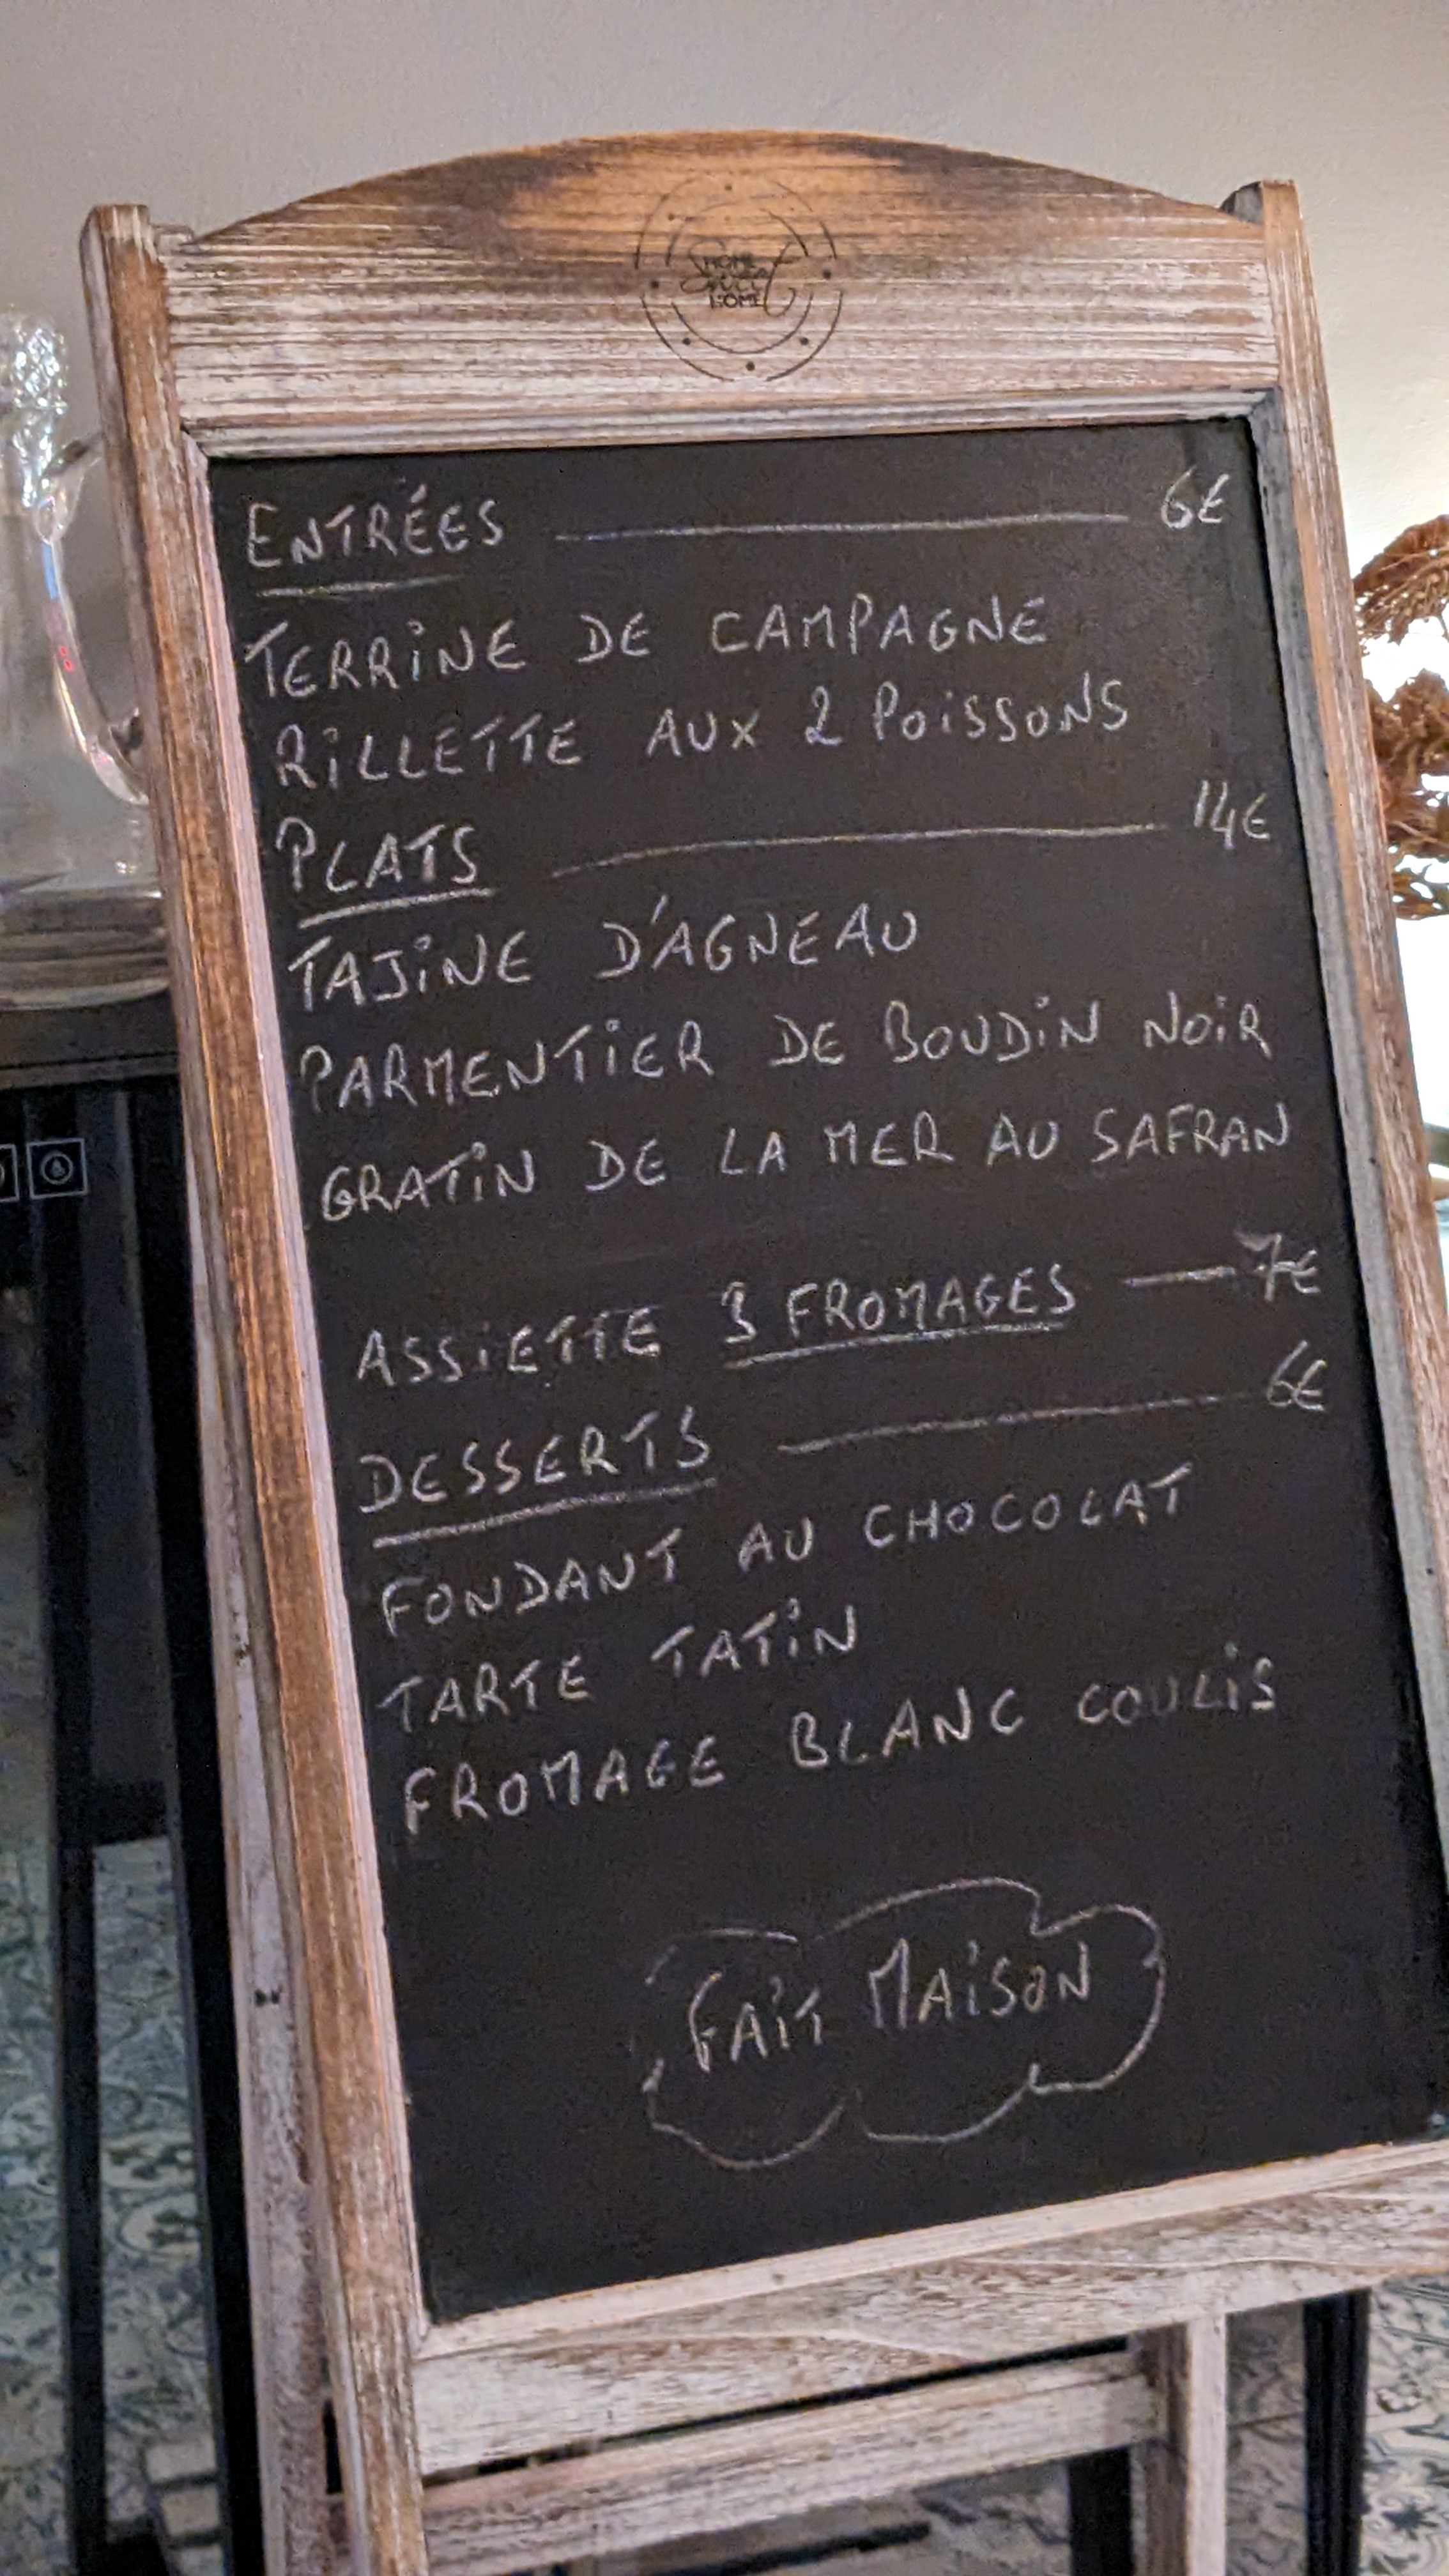 HOME
Sweet
HOME
ENTRÉES 6€
TERRINE DE CAMPAGNE
RILLETTE AUX 2 POISSONS
PLATS 14€
TAJINE D'AGNEAU
PARMENTIER DE BOUDIN NOIR
GRATIN DE LA MER AU SAFRAN
ASSIETTE 3 FROMAGES 7€
DESSERTS 6€
FONDANT AU CHOCOLAT
TARTE TATIN
FROMAGE BLANC COULIS
FAIT MAISON